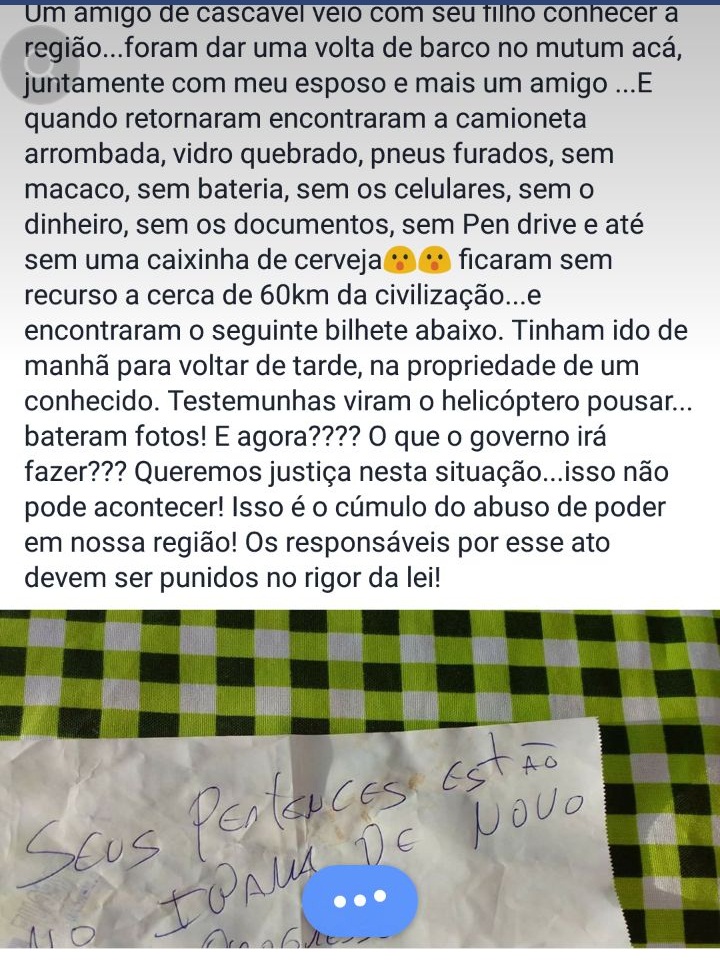 Um amigo de cascavel veio com seu filho conhecer a
região...foram dar uma volta de barco no mutum acá,
juntamente com meu esposo e mais um amigo ...E
quando retornaram encontraram a camioneta
arrombada, vidro quebrado, pneus furados, sem
macaco, sem bateria, sem os celulares, sem o
dinheiro, sem os documentos, sem Pen drive e até
sem uma caixinha de cerveja😮😮 ficaram sem
recurso a cerca de 60km da civilização...e
encontraram o seguinte bilhete abaixo. Tinham ido de
manhã para voltar de tarde, na propriedade de um
conhecido. Testemunhas viram o helicóptero pousar...
bateram fotos! E agora???? O que o governo irá
fazer??? Queremos justiça nesta situação...isso não
pode acontecer! Isso é o cúmulo do abuso de poder
em nossa região! Os responsáveis por esse ato
devem ser punidos no rigor da lei!
SEUS PERTENCES ESTÃO
NO IBAMA DE NOVO